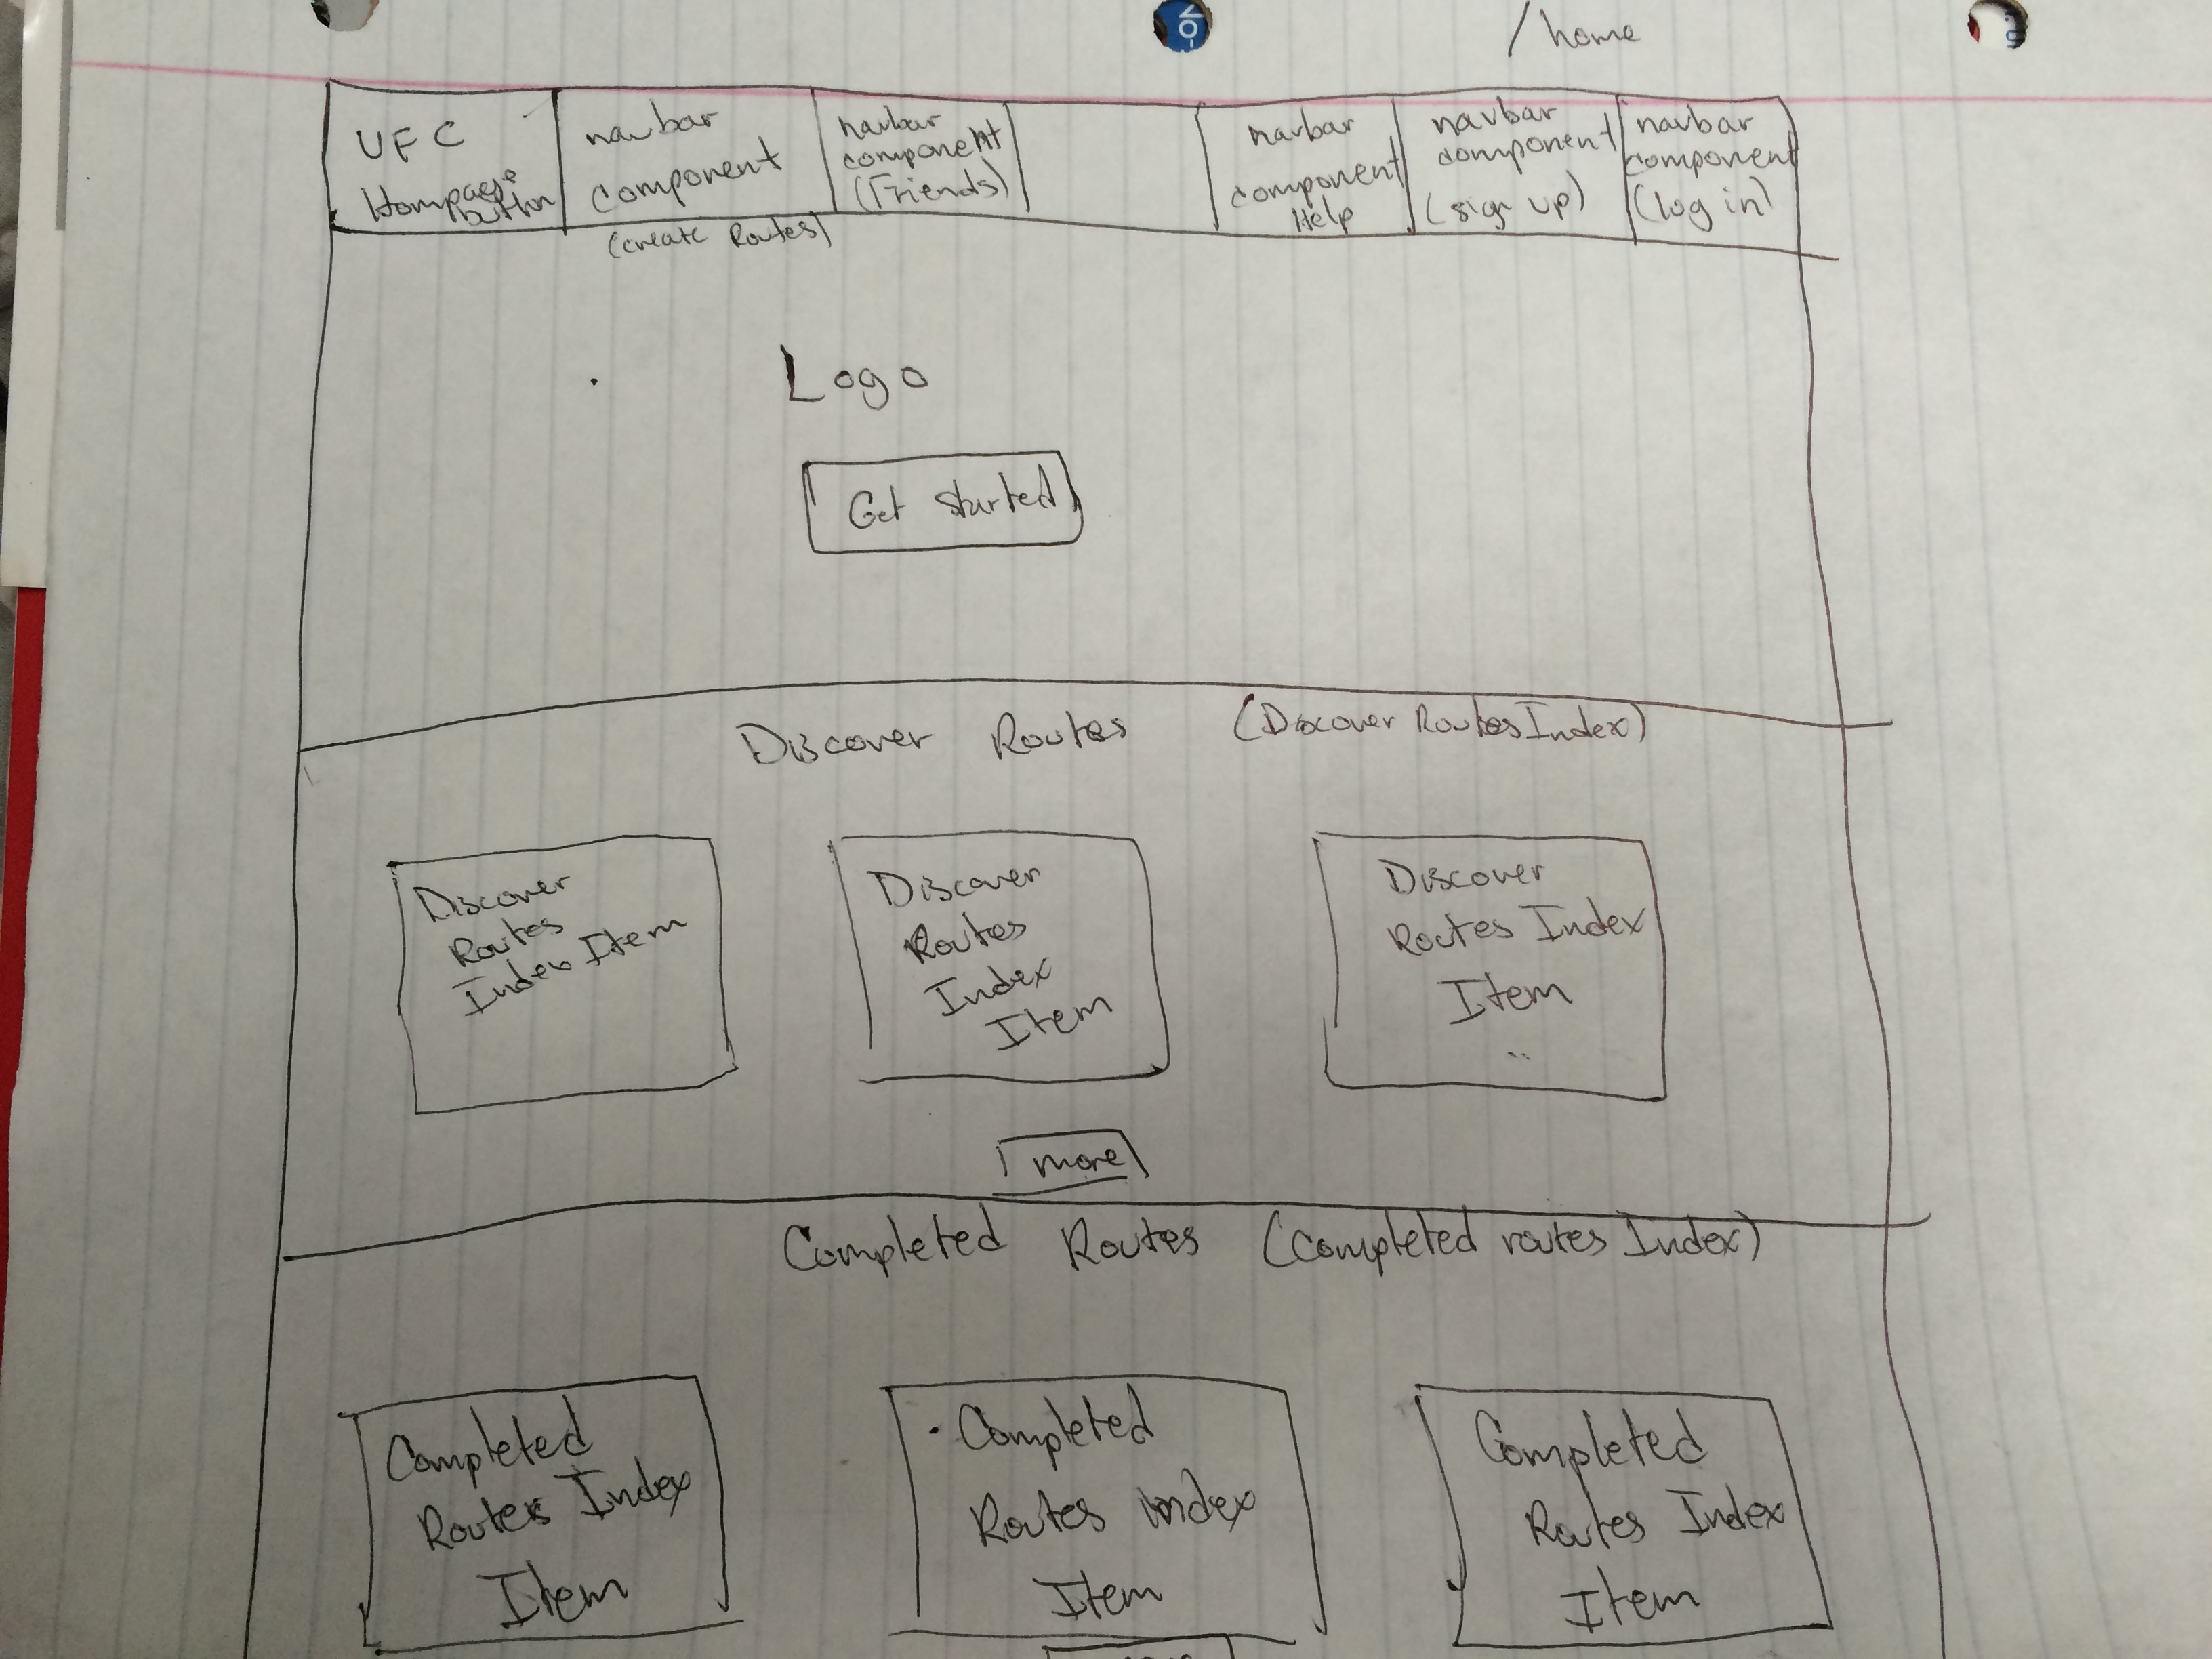 /home
UFC
Homepage
button
navbar
component
(create Routes)
navbar
component
(Friends)
navbar
component
Help
navbar
component
(sign up)
navbar
component
(log in)
Logo
Get started
Discover Routes (Discover Routes Index)
Discover
Routes
Index Item
Discover
Routes
Index
Item
Discover
Routes Index
Item
more
Completed Routes (Completed routes Index)
Completed
Routes Index
Item
Completed
Routes Index
Item
Completed
Routes Index
Item